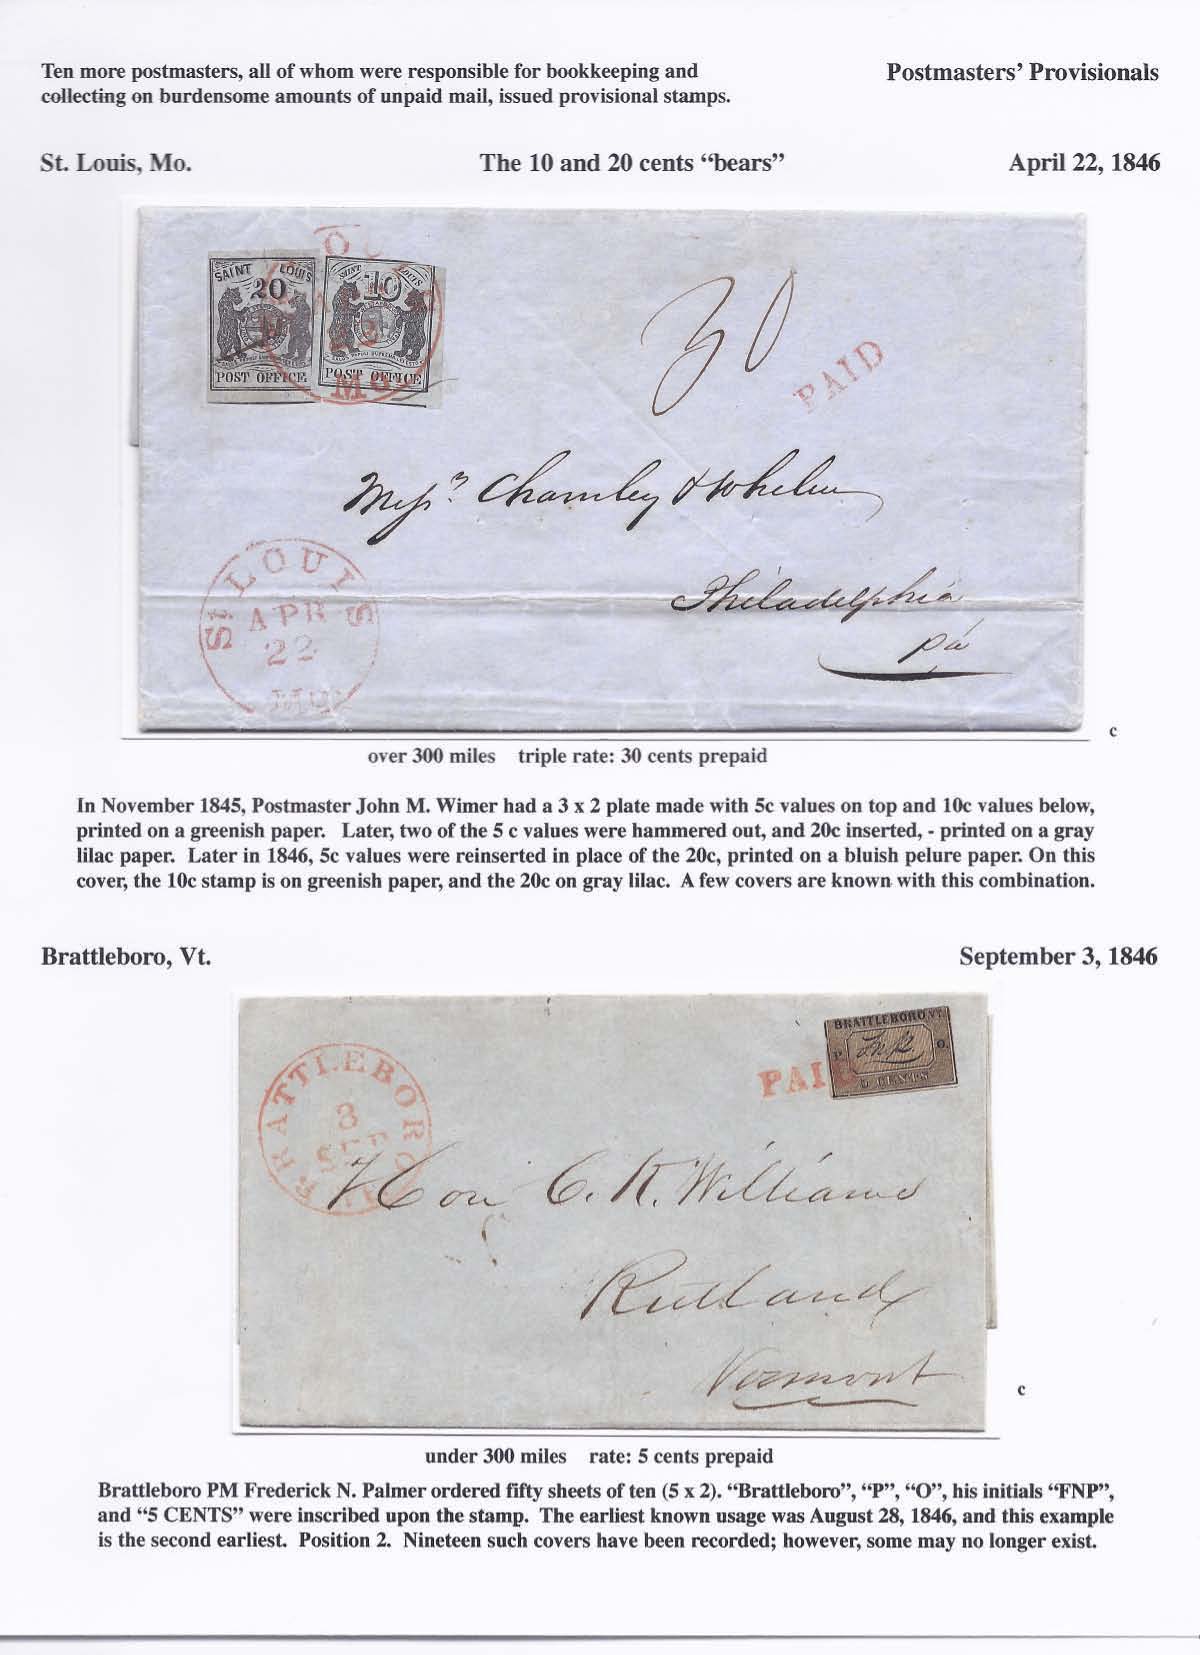 Ten more postmasters, all of whom were responsible for bookkeeping and
collecting on burdensome amounts of unpaid mail, issued provisional stamps.
Postmasters' Provisionals
St. Louis, Mo.
The 10 and 20 cents “bears”
April 22, 1846
SAINT LOUIS
20
POST OFFICE
SAINT LOUIS
10
POST OFFICE
LOUIS
Mo.
30
PAID
Messrs Chamley & Whelen
Philadelphia
Pa
St LOUIS
APR
22
MO
c
over 300 miles triple rate: 30 cents prepaid
In November 1845, Postmaster John M. Wimer had a 3 x 2 plate made with 5c values on top and 10c values below,
printed on a greenish paper. Later, two of the 5 c values were hammered out, and 20c inserted, - printed on a gray
lilac paper. Later in 1846, 5c values were reinserted in place of the 20c, printed on a bluish pelure paper. On this
cover, the 10c stamp is on greenish paper, and the 20c on gray lilac. A few covers are known with this combination.
Brattleboro, Vt.
September 3, 1846
BRATTLEBORO VT.
P O.
FNP.
5 CENTS
PAID
BRATTLEBORO
3
SEP
Hon C. K. Williams
Rutland
Vermont
c
under 300 miles rate: 5 cents prepaid
Brattleboro PM Frederick N. Palmer ordered fifty sheets of ten (5 x 2). “Brattleboro”, “P”, “O”, his initials “FNP”,
and “5 CENTS” were inscribed upon the stamp. The earliest known usage was August 28, 1846, and this example
is the second earliest. Position 2. Nineteen such covers have been recorded; however, some may no longer exist.